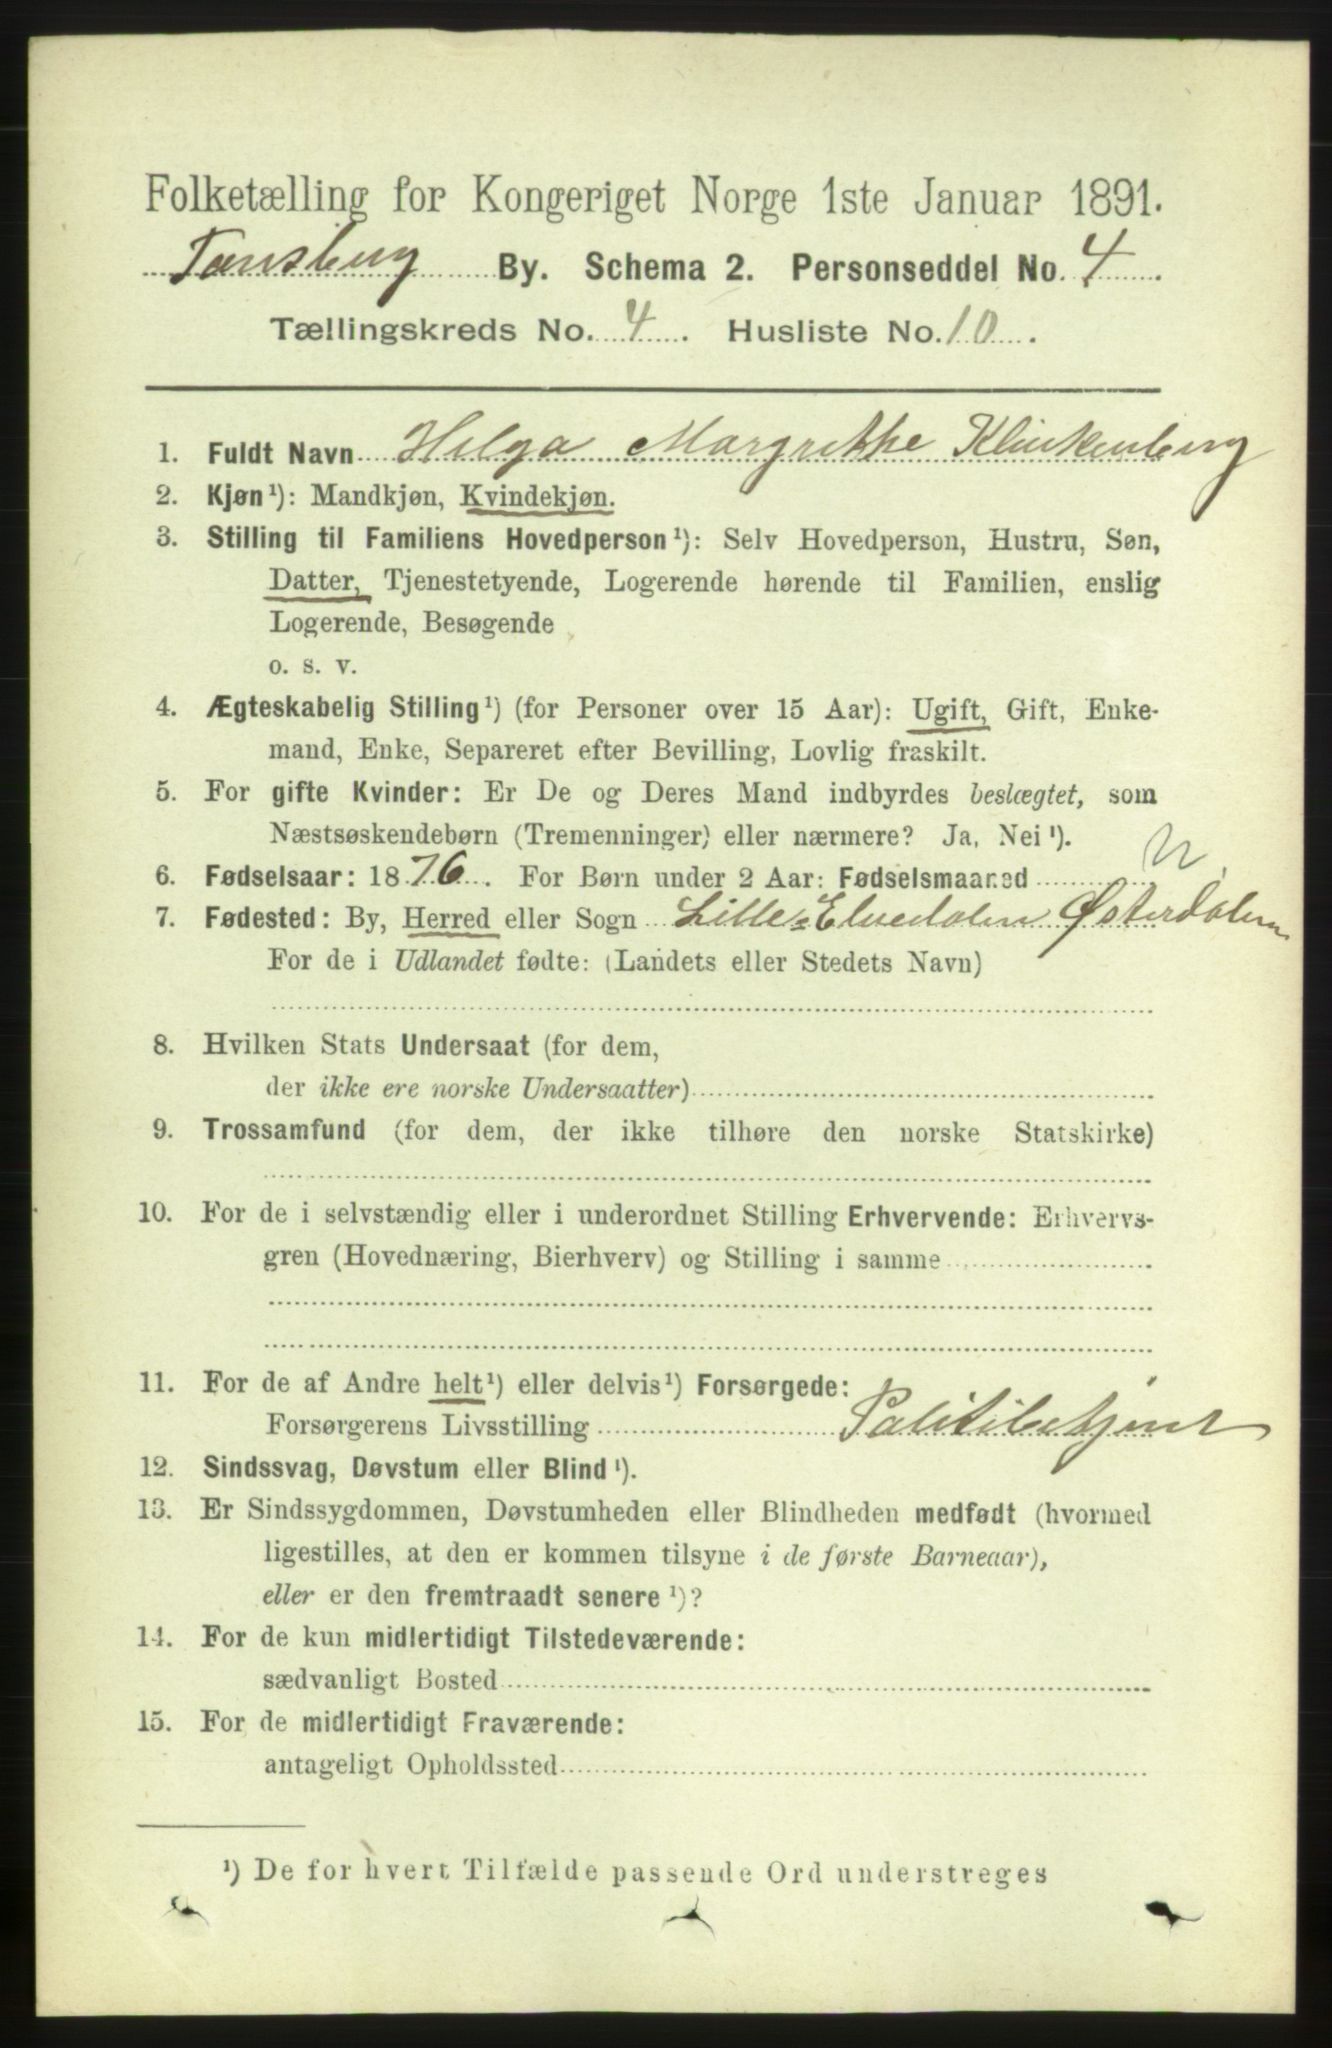 Folketælling for Kongeriget Norge 1ste Januar 1891.
Tønsberg By. Schema 2. Personseddel No. 4
Tællingskreds No. 4. Husliste No. 10.
1. Fuldt Navn Helga Margrethe Klinkenberg
2. Kjøn¹): Mandkjøn, Kvindekjøn.
3. Stilling til Familiens Hovedperson¹): Selv Hovedperson, Hustru, Søn,
Datter, Tjenestetyende, Logerende hørende til Familien, enslig
Logerende, Besøgende
o. s. v.
4. Ægteskabelig Stilling¹) (for Personer over 15 Aar): Ugift, Gift, Enke-
mand, Enke, Separeret efter Bevilling, Lovlig fraskilt.
5. For gifte Kvinder: Er De og Deres Mand indbyrdes beslægtet, som
Næstsøskendebørn (Tremenninger) eller nærmere? Ja, Nei¹).
6. Fødselsaar: 1876. For Børn under 2 Aar: Fødselsmaaned
7. Fødested: By, Herred eller Sogn Lille-Elvedalen Østerdalen
For de i Udlandet fødte: (Landets eller Stedets Navn)
8. Hvilken Stats Undersaat (for dem,
der ikke ere norske Undersaatter)
9. Trossamfund (for dem, der ikke tilhøre den norske Statskirke)
10. For de i selvstændig eller i underordnet Stilling Erhvervende: Erhvervs-
gren (Hovednæring, Bierhverv) og Stilling i samme
11. For de af Andre helt¹) eller delvis¹) Forsørgede:
Forsørgerens Livsstilling Politibetjent
12. Sindssvag, Døvstum eller Blind¹).
13. Er Sindssygdommen, Døvstumheden eller Blindheden medfødt (hvormed
ligestilles, at den er kommen tilsyne i de første Barneaar),
eller er den fremtraadt senere¹)?
14. For de kun midlertidigt Tilstedeværende:
sædvanligt Bosted
15. For de midlertidigt Fraværende:
antageligt Opholdssted
¹) De for hvert Tilfælde passende Ord understreges